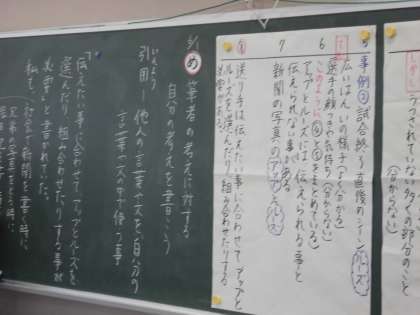 5 事例② 試合終了直後のシーン(ルーズ)
広いはんいの様子(よく分かる)
選手の顔つきや気持ち(分からない)
6 このように(④と⑤をまとめている)
アップとルーズには伝えられる事と
伝えられない事がある。
7 新聞の写真へ(アップ)(ルーズ)
8 送り手は伝えたい事に合わせてアップと
ルーズを選んだり組み合わせたりする
め 筆者の考えに対する
自分の考えを書こう
いんよう
引用―他人の言葉や文を自分の
言葉や文の中で使う事
「伝えたい事に合わせてアップとルーズを
選んだり組み合わせたりする事が
必要」と書かれていた。
私も、社会で新聞を書く時に